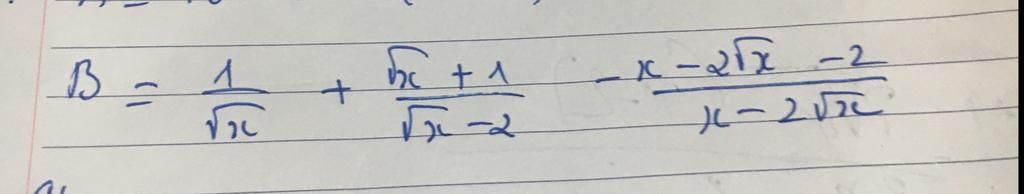 B = 1/√x + (√x + 1)/(√x - 2) - (x - 2√x - 2)/(x - 2√x)